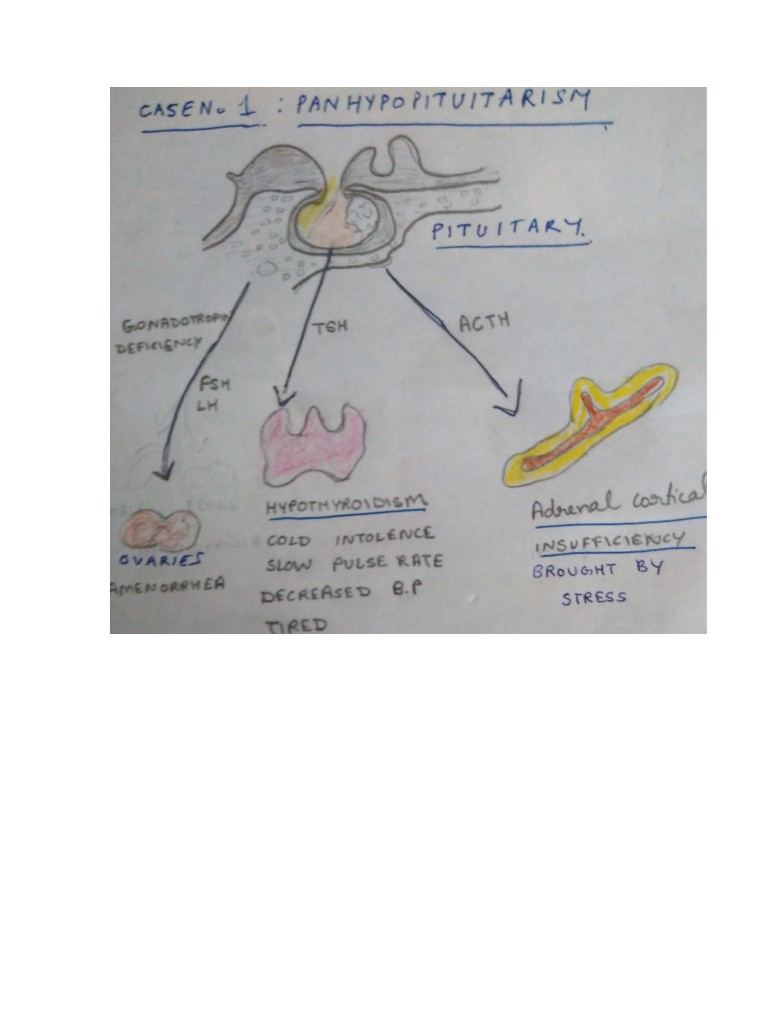 CASE No. 1 : PANHYPOPITUITARISM
PITUITARY.
GONADOTROPIN
DEFICIENCY
FSH
LH
TSH
ACTH
OVARIES
AMENORRHEA
HYPOTHYROIDISM
COLD INTOLENCE
SLOW PULSE RATE
DECREASED B.P
TIRED
Adrenal cortical
INSUFFICIENCY
BROUGHT BY
STRESS